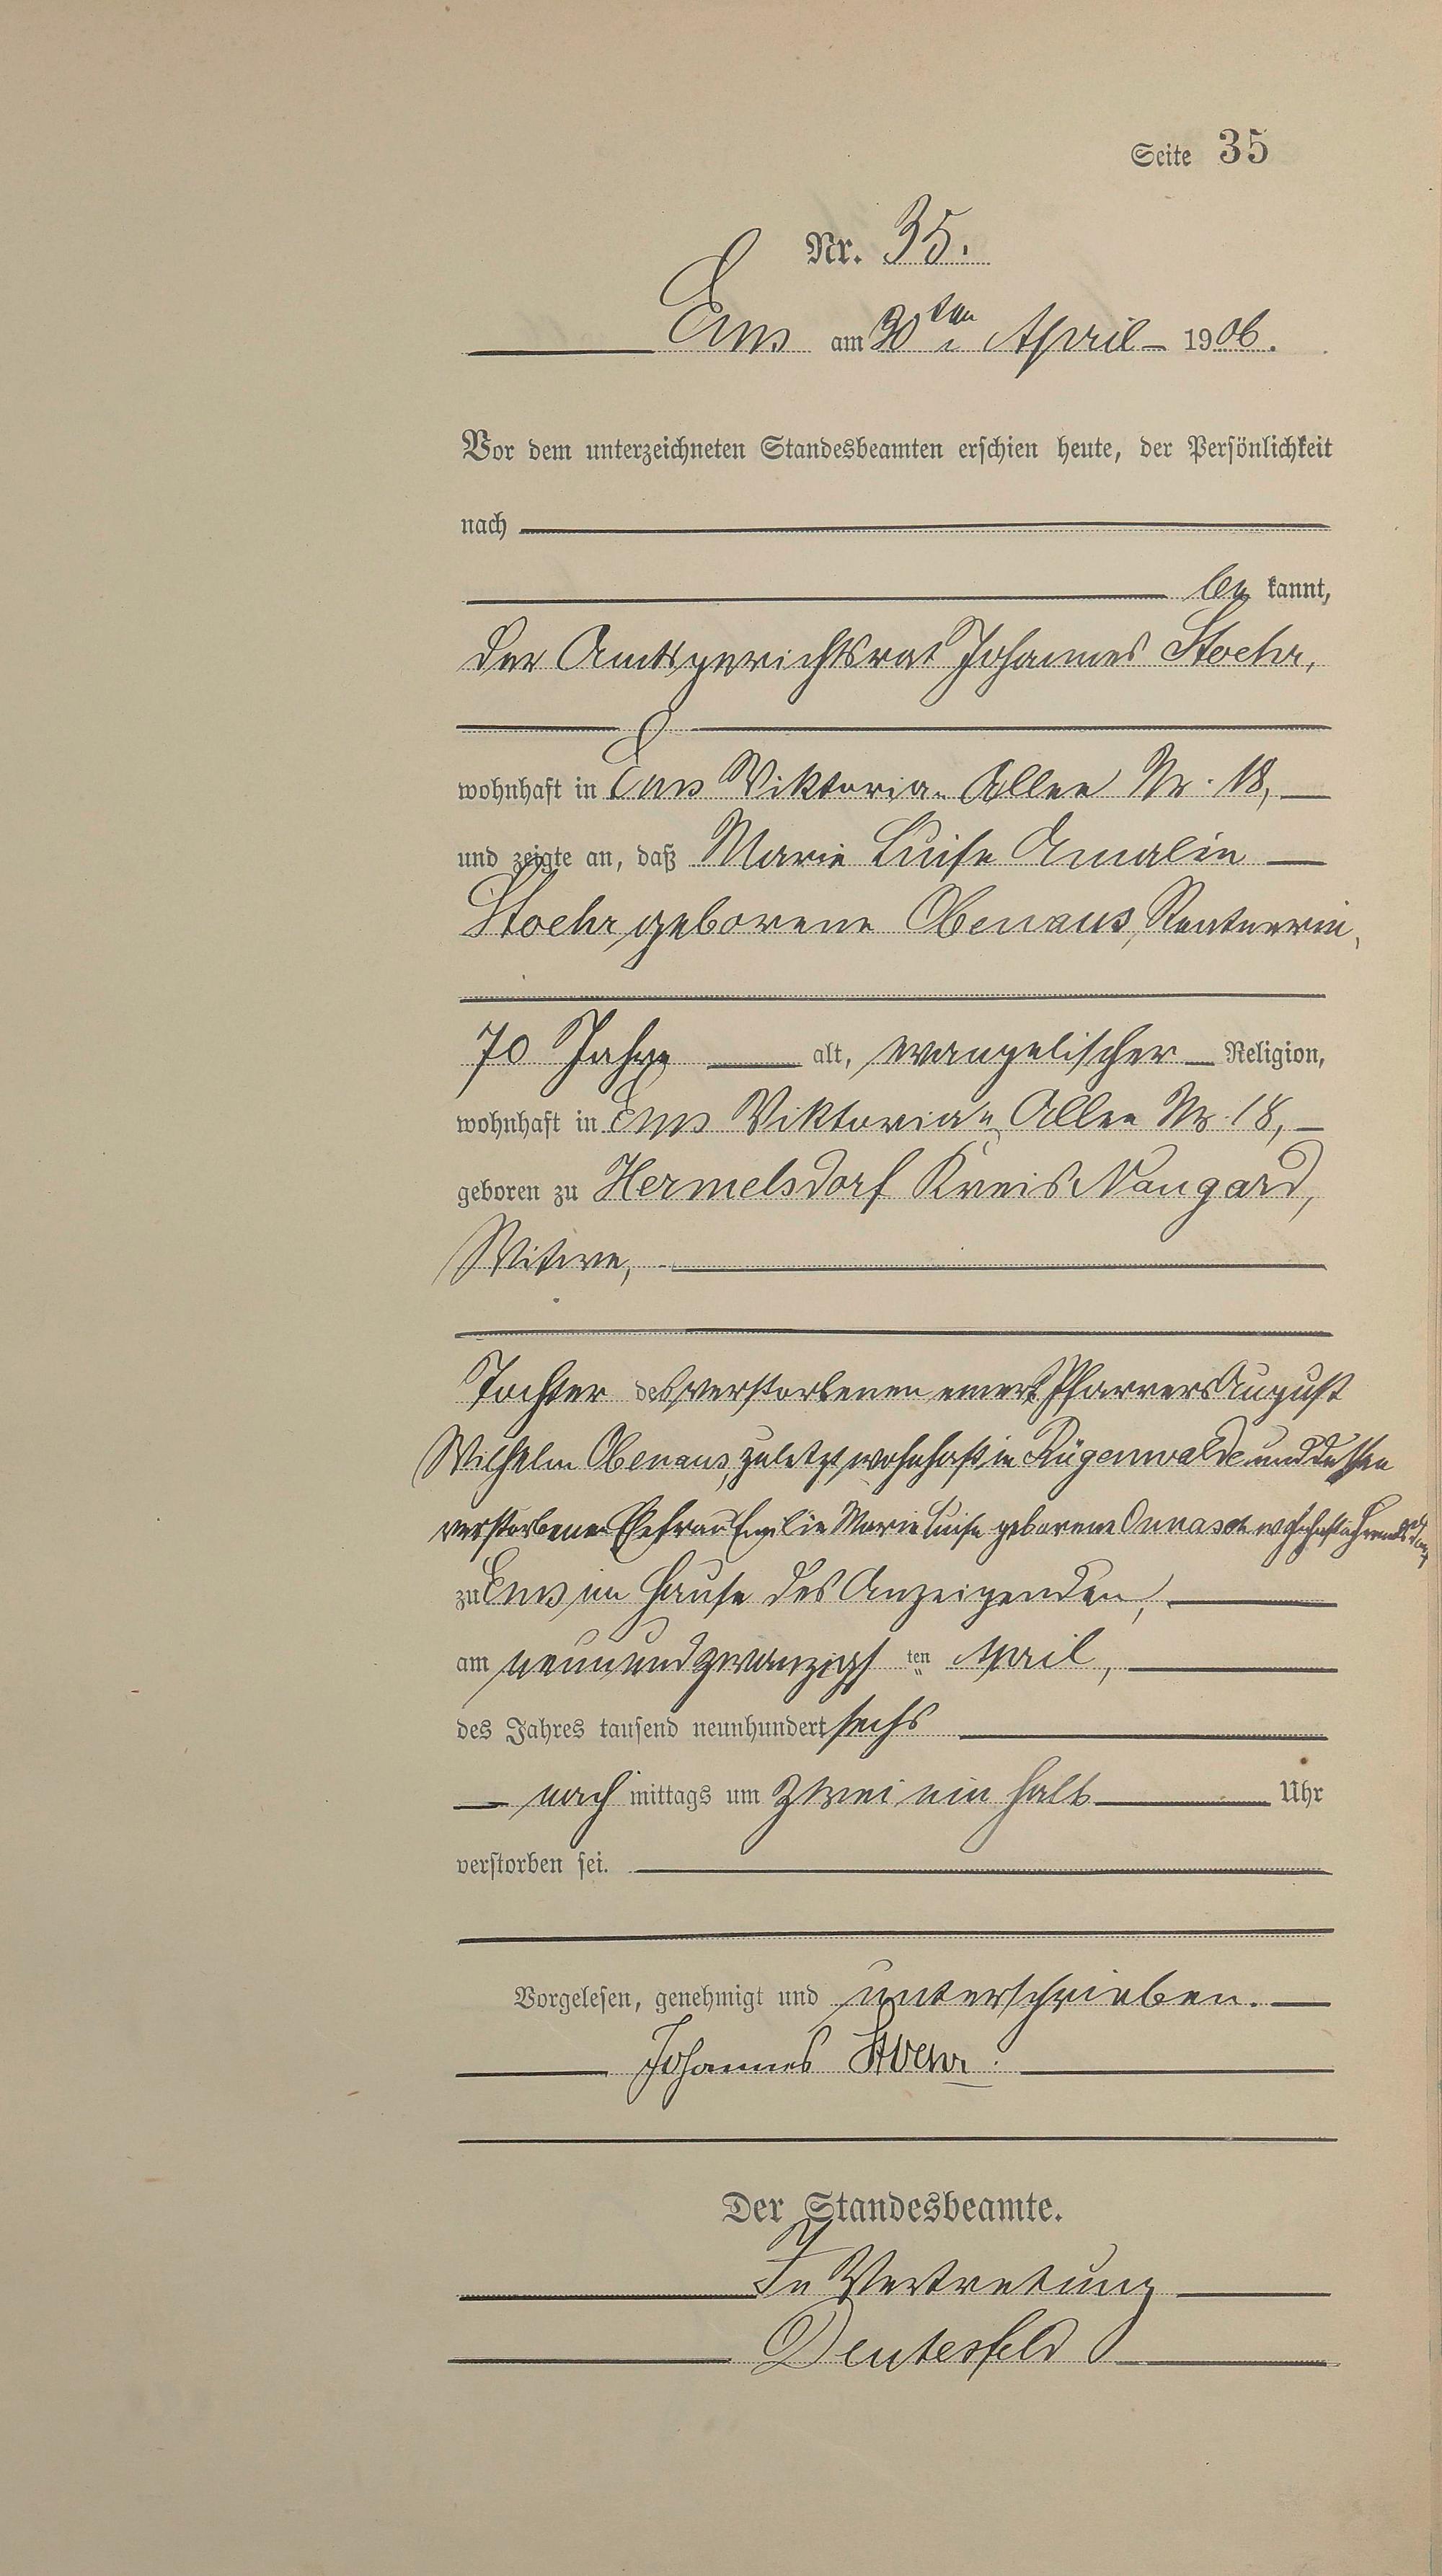 Seite 35
Nr. 35.
Ems am 30ten April 1906.
Vor dem unterzeichneten Standesbeamten erschien heute, der Persönlichkeit
nach
be kannt,
der Amtsgerichtsrat Johannes Stoehr,
wohnhaft in Ems Viktoria-Allee Nr. 18,
und zeigte an, daß Marie Luise Amalie
Stoehr geborene Obenaus, Rentnerin,
70 Jahre alt, evangelischer Religion,
wohnhaft in Ems Viktoria-Allee Nr. 18,
geboren zu Hermelsdorf Kreis Naugard,
Witwe,
Tochter des verstorbenen emert. Pfarrers August
Wilhelm Obenaus, zuletzt wohnhaft in Rügenwalde und dessen
verstorbenen Ehefrau Emilie Marie Luise geborene Onnasch wohnhaft in Hermelsdorf
zu Ems im Hause des Anzeigenden,
am neunundzwanzigsten April,
des Jahres tausend neunhundert sechs
nach mittags um zwei ein halb Uhr
verstorben sei.
Vorgelesen, genehmigt und unterschrieben.
Johannes Stoehr.
Der Standesbeamte.
In Vertretung